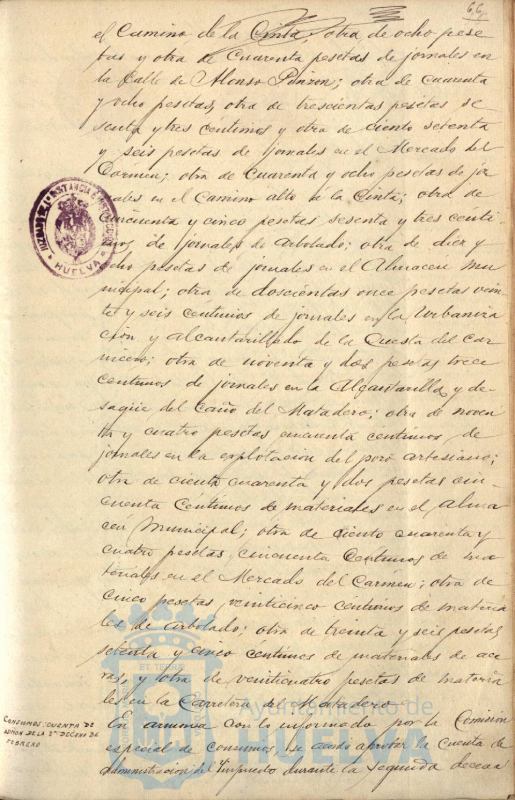 66
el Camino de la Cinta; otra de ocho pese
tas y otra de cuarenta pesetas de jornales en
la Calle de Alonso Pinzon; otra de cuarenta
y ocho pesetas, otra de trescientas pesetas se
senta y tres céntimos y otra de ciento setenta
y seis pesetas de jornales en el Mercado del
Carmen; otra de cuarenta y ocho pesetas de jor
nales en el Camino alto á la Cinta; otra de
cincuenta y cinco pesetas sesenta y tres cénti
mos de jornales de arbolado; otra de diez y
ocho pesetas de jornales en el Almacen mu
nicipal; otra de doscientas once pesetas vein
te y seis centimos de jornales en la Urbaniza
cion y alcantarillado de la Cuesta del Car
nicero; otra de noventa y dos pesetas trece
centimos de jornales en la Alcantarilla y de-
sagüe del Caño del Matadero; otra de noven
ta y cuatro pesetas cincuenta centimos de
jornales en la explotacion del pozo artesiano;
otra de ciento cuarenta y dos pesetas cin-
cuenta céntimos de materiales en el Alma
cen Municipal; otra de ciento cuarenta y
cuatro pesetas cincuenta centimos de ma
teriales en el Mercado del Carmen; otra de
cinco pesetas, veinticinco céntimos de materia
les de arbolado; otra de treinta y seis pesetas
setenta y cinco centimos de materiales de ace
ras, y otra de veinticuatro pesetas de materia
les en la Carretera del Matadero.
En armonia con lo informado por la Comision
especial de consumos, se acordó aprobar la cuenta de
administracion del impuesto durante la segunda decena
CONSUMOS: CUENTA DE
ADMON DE LA 2ª DECENA DE
FEBRERO
JUZGADO DE 1ª INSTANCIA E INSTRUCCION
HUELVA
Ayuntamiento de
HUELVA